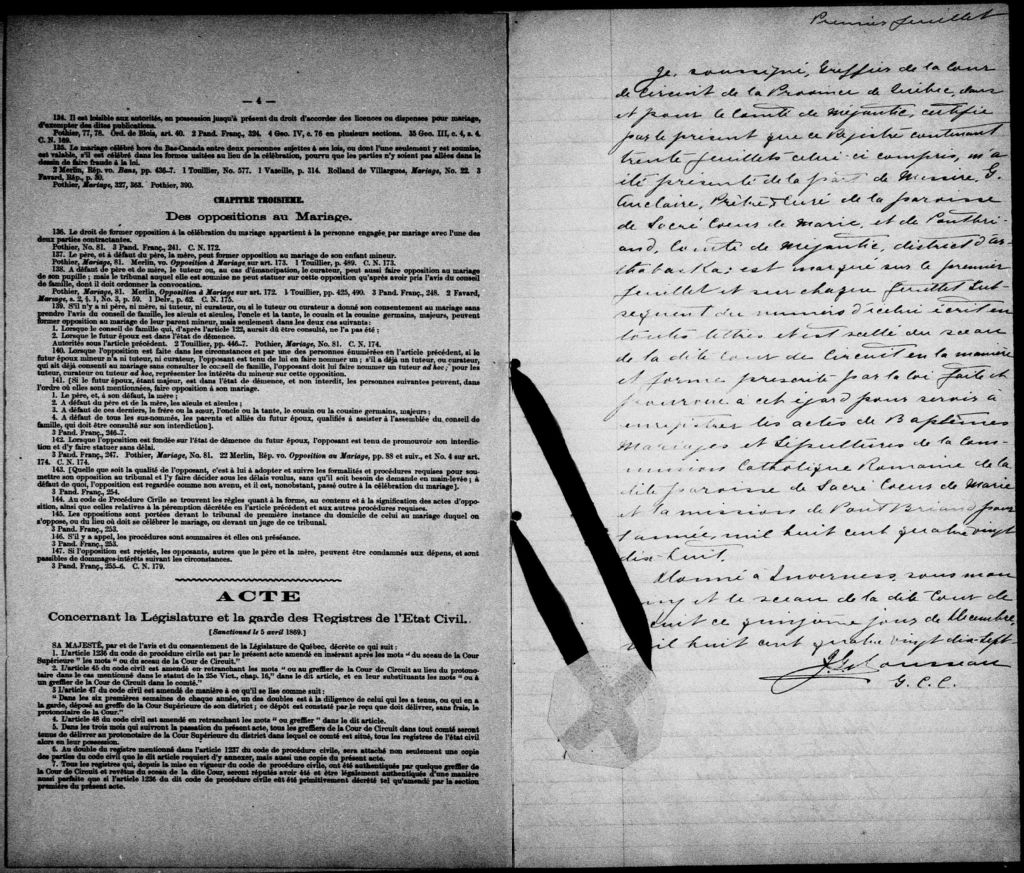 — 4 —
134. Il est loisible aux autorités, en possession jusqu'à présent du droit d'accorder des licences ou dispenses pour mariage,
d'exempter des dites publications.
Pothier, 77, 78. Ord. de Blois, art. 40. 2 Pand. Franç., 224. 4 Geo. IV, c. 76 en plusieurs sections. 35 Geo. III, c. 4, s. 4.
C. N. 169.
135. Le mariage célébré hors du Bas-Canada entre deux personnes sujettes à ses lois, ou dont l'une seulement y est soumise,
est valable, s'il est célébré dans les formes usitées au lieu de la célébration, pourvu que les parties n'y soient pas allées dans le
dessin de faire fraude à la loi.
2 Merlin, Rép. vo. Bans, pp. 436-7. 1 Touillier, No. 577. 1 Vazeille, p. 314. Rolland de Villargues, Mariage, No. 22. 3
Favard, Rép., p. 30.
Pothier, Mariage, 327, 363. Pothier, 390.
CHAPITRE TROISIEME.
Des oppositions au Mariage.
136. Le droit de former opposition à la célébration du mariage appartient à la personne engagée par mariage avec l'une des
deux parties contractantes.
Pothier, No. 81. 3 Pand. Franç., 241. C. N. 172.
137. Le père, et à défaut du père, la mère, peut former opposition au mariage de son enfant mineur.
Pothier, Mariage, 81. Merlin, vo. Opposition à Mariage sur art. 173. 1 Touillier, p. 489. C. N. 173.
138. A défaut de père et de mère, le tuteur ou, au cas d'émancipation, le curateur, peut aussi faire opposition au mariage
de son pupille ; mais le tribunal auquel elle est soumise ne peut statuer sur cette opposition qu'après avoir pris l'avis du conseil
de famille, dont il doit ordonner la convocation.
Pothier, Mariage, 81. Merlin, Opposition à Mariage sur art. 172. 1 Touillier, pp. 425, 490. 3 Pand. Franç., 248. 2 Favard,
Mariage, s. 2, § 1, No. 3, p. 59. 1 Delv., p. 62. C. N. 175.
139. S'il n'y a ni père, ni mère, ni tuteur, ni curateur, ou si le tuteur ou curateur a donné son consentement au mariage sans
prendre l'avis du conseil de famille, les aïeuls et aïeules, l'oncle et la tante, le cousin et la cousine germains, majeurs, peuvent
former opposition au mariage de leur parent mineur, mais seulement dans les deux cas suivants :
1. Lorsque le conseil de famille qui, d'après l'article 122, aurait dû être consulté, ne l'a pas été ;
2. Lorsque le futur époux est dans l'état de démence.
Autorités sous l'article précédent. 2 Touillier, pp. 446-7. Pothier, Mariage, No. 81. C. N. 174.
140. Lorsque l'opposition est faite dans les circonstances et par une des personnes énumérées en l'article précédent, si le
futur époux mineur n'a ni tuteur, ni curateur, l'opposant est tenu de lui en faire nommer un ; s'il a déjà un tuteur, ou curateur,
qui ait déjà consenti au mariage sans consulter le conseil de famille, l'opposant doit lui faire nommer un tuteur ad hoc ; pour les
tuteur, curateur ou tuteur ad hoc, représenter les intérêts du mineur sur cette opposition.
141. [Si le futur époux, étant majeur, est dans l'état de démence, et non interdit, les personnes suivantes peuvent, dans
l'ordre où elles sont mentionnées, faire opposition à son mariage.
1. Le père, et, à son défaut, la mère ;
2. A défaut du père et de la mère, les aïeuls et aïeules ;
3. A défaut de ces derniers, le frère ou la sœur, l'oncle ou la tante, le cousin ou la cousine germains, majeurs ;
4. A défaut de tous les sus-nommés, les parents et alliés du futur époux, qualifiés à assister à l'assemblée du conseil de
famille, qui doit être consulté sur son interdiction].
3 Pand. Franç., 246-7.
142. Lorsque l'opposition est fondée sur l'état de démence du futur époux, l'opposant est tenu de promouvoir son interdic-
tion et d'y faire statuer sans délai.
3 Pand. Franç., 247. Pothier, Mariage, No. 81. 22 Merlin, Rép. vo. Opposition au Mariage, pp. 88 et suiv., et No. 4 sur art.
174. C. N. 174.
143. [Quelle que soit la qualité de l'opposant, c'est à lui à adopter et suivre les formalités et procédures requises pour sou-
mettre son opposition au tribunal et l'y faire décider sous les délais voulus, sans qu'il soit besoin de demande en main-levée ; à
défaut de quoi, l'opposition est regardée comme non avenu, et il est, nonobstant, passé outre à la célébration du mariage].
3 Pand. Franç., 254.
144. Au code de Procédure Civile se trouvent les règles quant à la forme, au contenu et à la signification des actes d'oppo-
sition, ainsi que celles relatives à la péremption décrétée en l'article précédent et aux autres procédures requises.
145. Les oppositions sont portées devant le tribunal de première instance du domicile de celui au mariage duquel on
s'oppose, ou du lieu où doit se célébrer le mariage, ou devant un juge de ce tribunal.
3 Pand. Franç., 253.
146. S'il y a appel, les procédures sont sommaires et elles ont préséance.
3 Pand. Franç., 253.
147. Si l'opposition est rejetée, les opposants, autres que le père et la mère, peuvent être condamnés aux dépens, et sont
passibles de dommages-intérêts suivant les circonstances.
3 Pand. Franç., 255-6. C. N. 179.
ACTE
Concernant la Législature et la garde des Registres de l'Etat Civil.
[Sanctionné le 5 avril 1869.]
SA MAJESTÉ, par et de l'avis et du consentement de la Législature de Québec, décrète ce qui suit :
1. L'article 1236 du code de procédure civile est par le présent acte amendé en insérant après les mots " du sceau de la Cour
Supérieure " les mots " ou du sceau de la Cour de Circuit."
2. L'article 45 du code civil est amendé en retranchant les mots " ou au greffier de la Cour de Circuit au lieu du protono-
taire dans le cas mentionné dans le statut de la 25e Vict., chap. 16," dans le dit article, et en leur substituants les mots " ou à
un greffier de la Cour de Circuit dans le comté."
3 L'article 47 du code civil est amendé de manière à ce qu'il se lise comme suit :
" Dans les six premières semaines de chaque année, un des doubles est à la diligence de celui qui les a tenus, ou qui en a
la garde, déposé au greffe de la Cour Supérieure de son district ; ce dépôt est constaté par le reçu que doit délivrer, sans frais, le
protonotaire de la Cour."
4. L'article 48 du code civil est amendé en retranchant les mots " ou greffier " dans le dit article.
5. Dans les trois mois qui suivront la passation du présent acte, tous les greffiers de la Cour de Circuit dans tout comté seront
tenus de délivrer au protonotaire de la Cour Supérieure du district dans lequel ce comté est situé, tous les registres de l'état civil
alors en leur possession.
6. Au double du registre mentionné dans l'article 1237 du code de procédure civile, sera attaché non seulement une copie
des parties du code civil que le dit article requiert d'y annexer, mais aussi une copie du présent acte.
7. Tous les registres qui, depuis la mise en vigueur du code de procédure civile, ont été authentiqués par quelque greffier de
la Cour de Circuit et revêtus du sceau de la dite Cour, seront réputés avoir été et être légalement authentiqués d'une manière
aussi parfaite que si l'article 1236 du dit code de procédure civile eût été primitivement décrété tel qu'amendé par la section
première du présent acte.
Premier feuillet
Je, soussigné, Greffier de la Cour
de Circuit de la Province de Québec, dans
et pour le Comté de Mégantic, certifie
par le présent que ce Registre contenant
trente feuillets celui-ci compris, m'a
été présenté de la part de Messire G.
Prêtre & Curé de la paroisse
de Sacré Coeur de Marie et de Pontbri-
and, Comté de Mégantic, district d'Ar-
thabaska : est marqué sur le premier
feuillet et sur chaque feuillet sub-
séquent du numéro d'icelui écrit en
toutes lettres et est scellé du sceau
de la dite Cour de Circuit en la manière
et forme prescrite par la loi faite et
pourvue à cet égard pour servir à
enregistrer les actes de Baptêmes
Mariages et Sépultures de la Com-
munion Catholique Romaine de la
dite paroisse de Sacré Coeur de Marie
et la missions de Pont Briand pour
l'année, mil huit cent quatre vingt
dix-huit.
Donné à Inverness, sous mon
et le sceau de la dite Cour de
ce quinzième jour de Décembre,
mil huit cent quatre vingt dix-sept.
Cousseau
G. C. C.